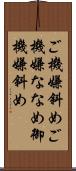 ご機嫌斜めご
機嫌ななめ御
機嫌斜め